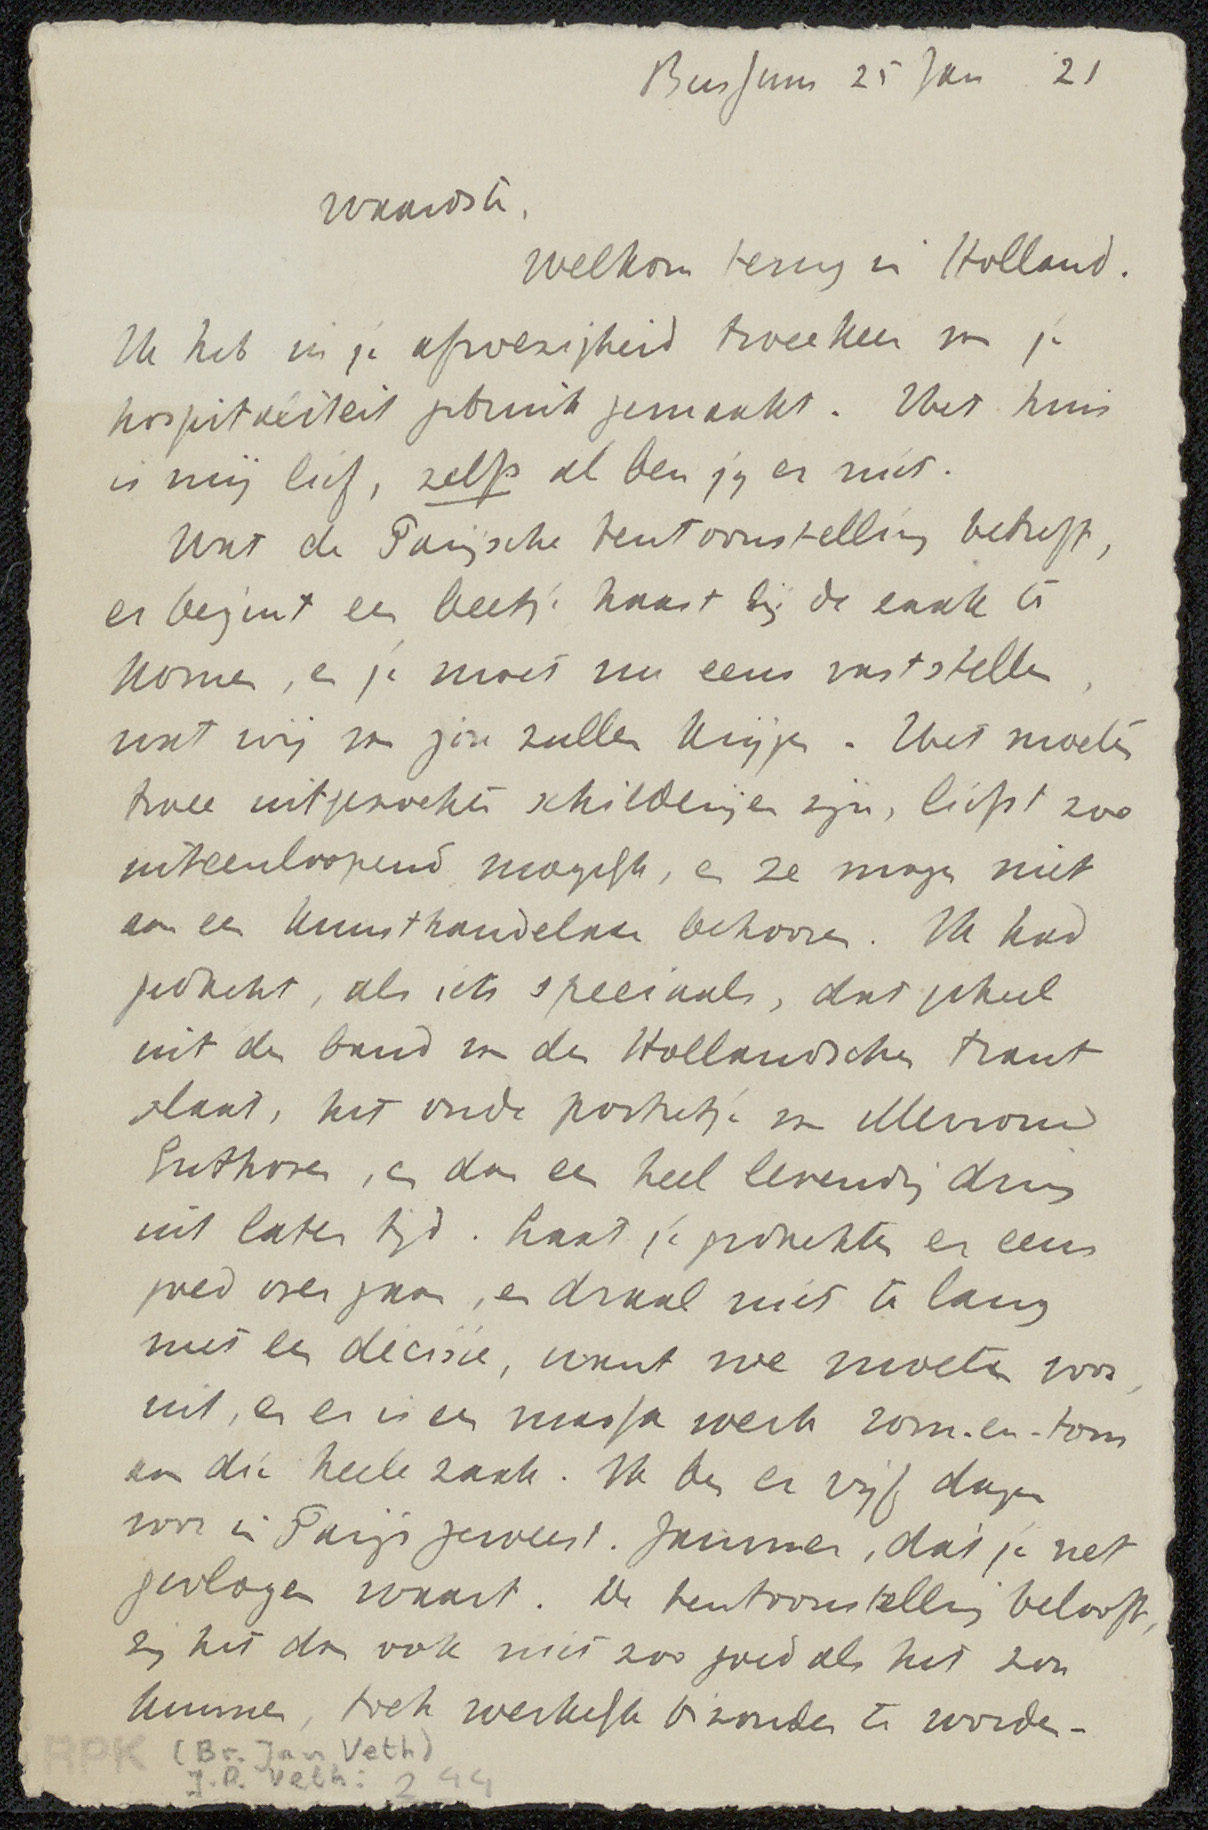 Bussum 25 Jan 21
Waardste,
Welkom terug in Holland.
Ik heb in je afwezigheid tweekeer van je
hospitaliteit gebruik gemaakt. Het huis
is mij lief, zelfs al ben jij er niet.
Wat de Parijsche tentoonstelling betreft,
er begint een beetje haast bij de zaak te
komen, en je moet nu eens vaststellen,
wat wij van jou zullen krijgen. Het moeten
twee uitgezochte schilderijen zijn, liefst zoo
uiteenloopend mogelijk, en ze mogen niet
aan een kunsthandelaar behooren. Ik had
gedacht, als iets speciaals, dat geheel
uit den band van den Hollandschen trant
slaat, het oude portretje van Mevrouw
Enthoven, en dan een heel levendig ding
uit later tijd. Laat je gedachten er eens
goed over gaan, en draal niet te lang
met een decisie, want we moeten voor-
uit, en er is een massa werk rom-en-tom
aan die heele zaak. Ik ben er vijf dagen
voor in Parijs geweest. Jammer, dat je net
gevlogen waart. De tentoonstelling belooft,
zij het dan ook niet zoo goed als het zou
kunnen, toch werkelijk bizonder te worden-
RPK (Br. Jan Veth)
J.P. Veth: 244